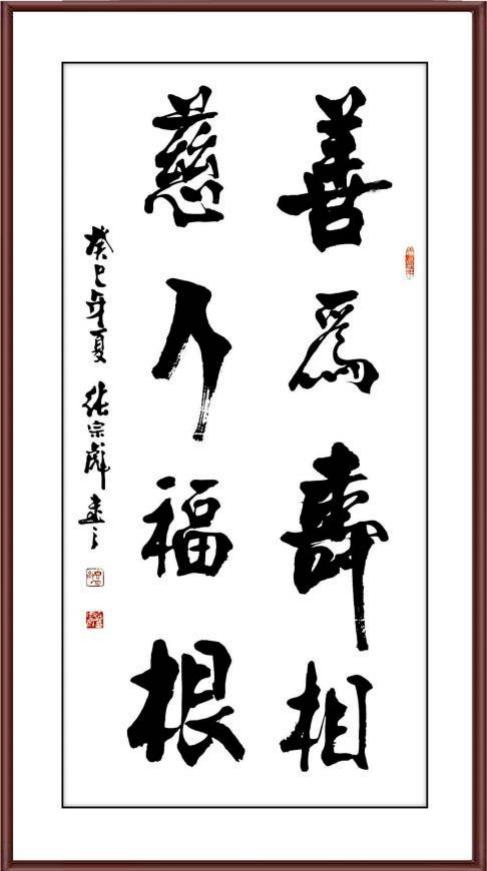 善為壽相
慈乃福根
癸巳年夏 張宗彪書